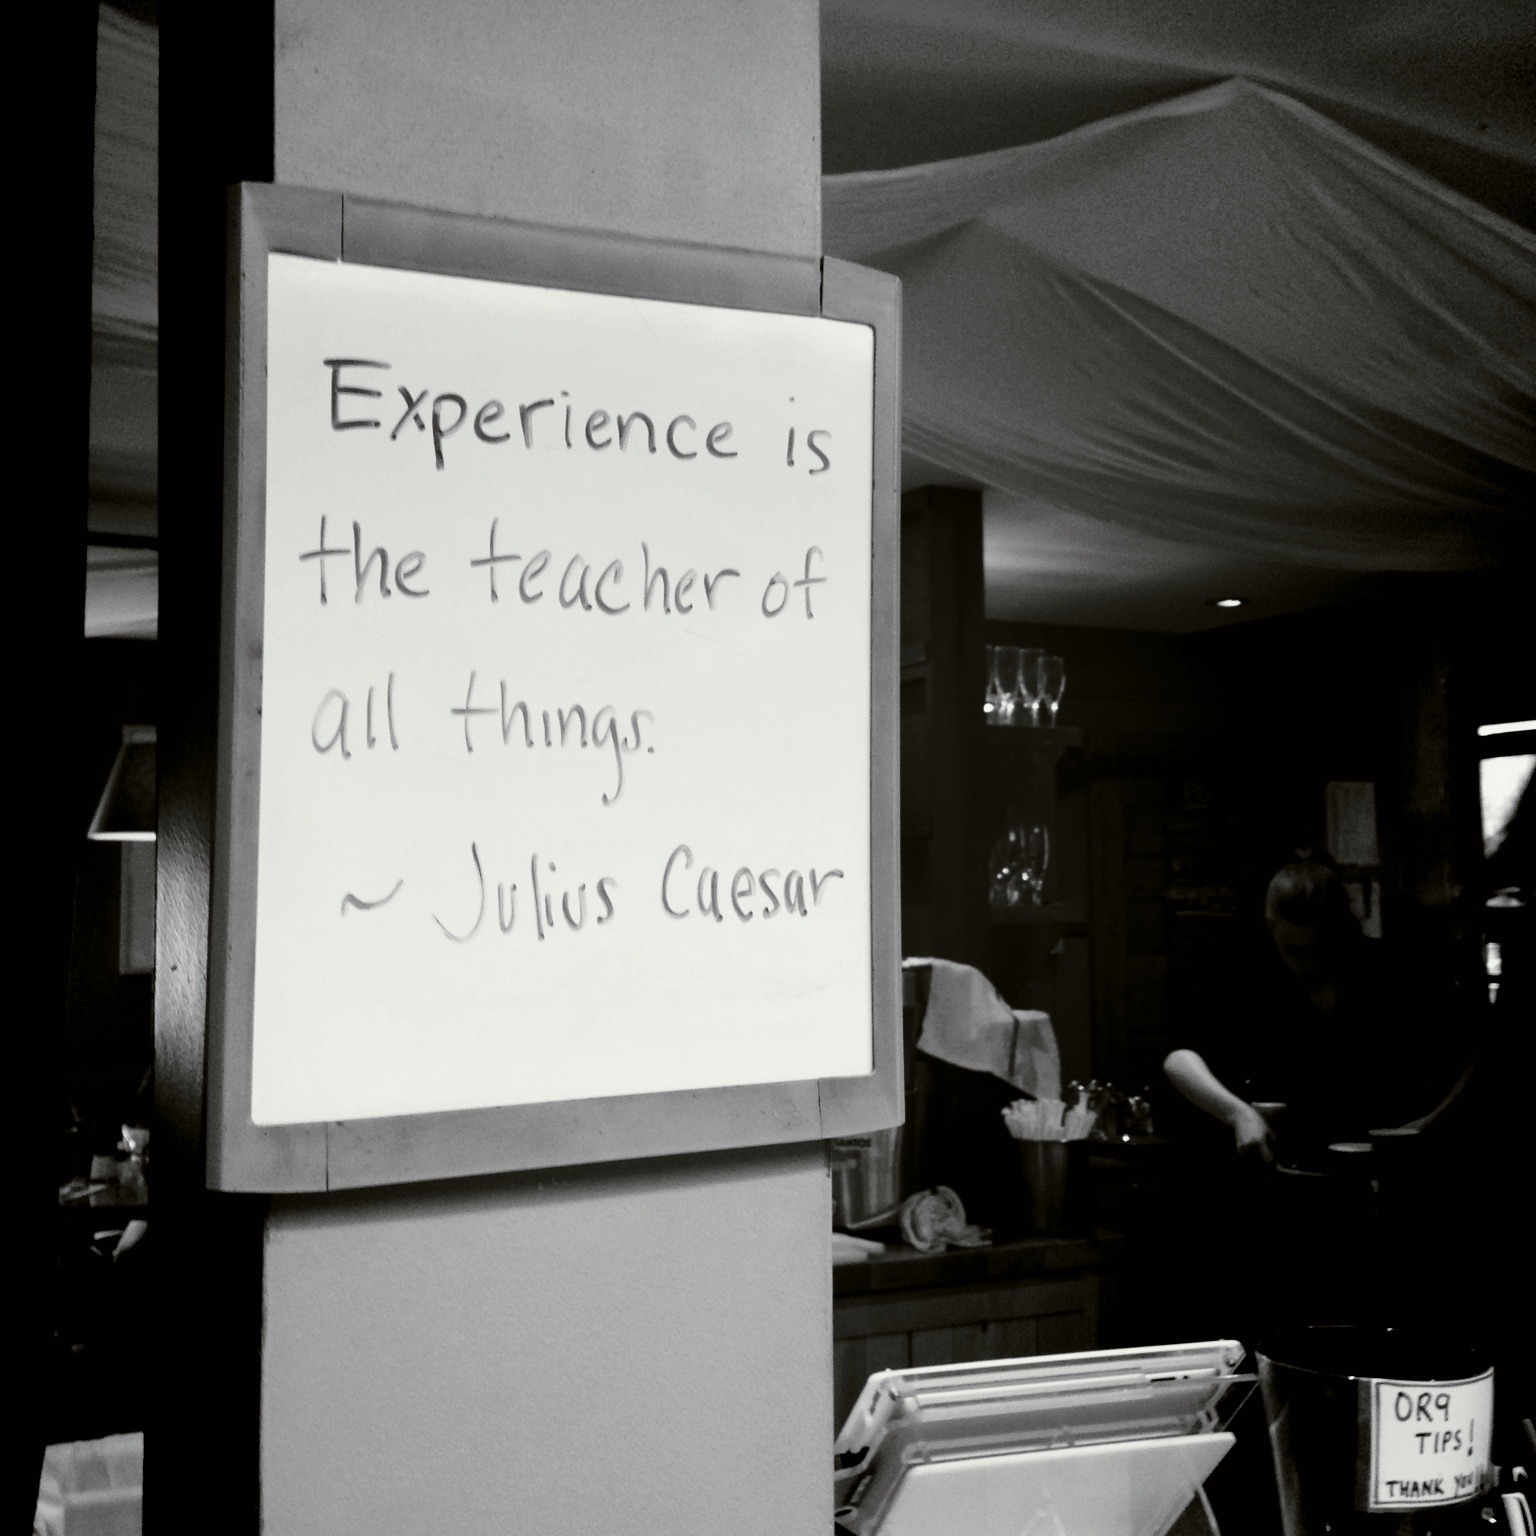 Experience is
the teacher of
all things.
~ Julius Caesar
OR9
TIPS!
THANK YOU!